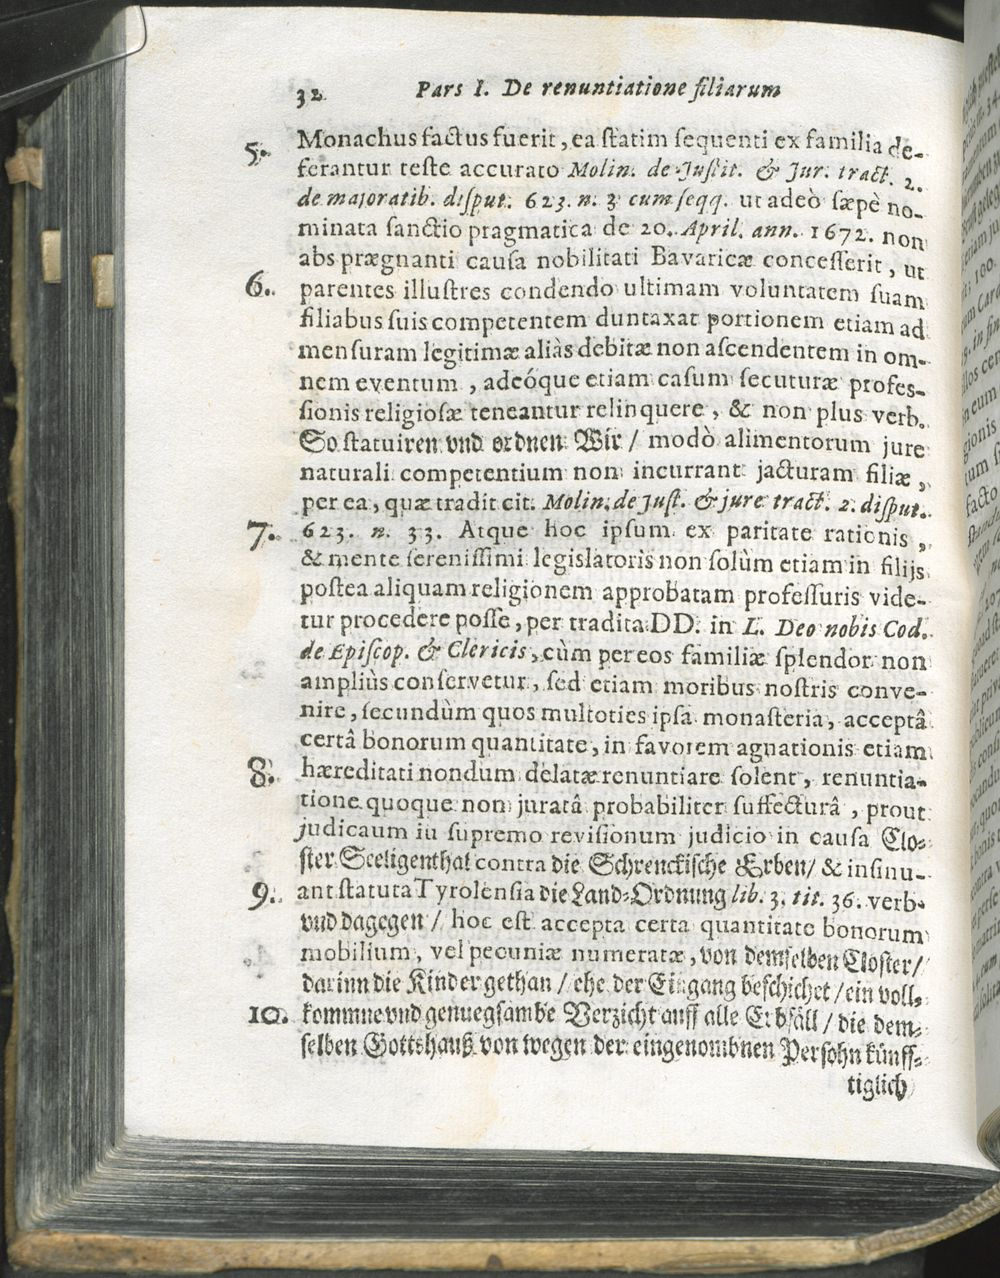 32 Pars I. De renuntiatione filiarum
5. Monachus factus fuerit, ea ſtatim ſequenti ex familia de-
ferantur teſte accurato Molin. de Juſtit. & Jur. tract. 2.
de majoratib. diſput. 623. n. 3 cum ſeqq. ut adeò ſæpè no-
minata ſanctio pragmatica de 20. April. ann. 1672. non
abs prægnanti cauſa nobilitati Bavaricæ conceſſerit, ut
6. parentes illuſtres condendo ultimam voluntatem ſuam
filiabus ſuis competentem duntaxat portionem etiam ad
menſuram legitimæ aliàs debitæ non aſcendentem in om-
nem eventum, adeóque etiam caſum ſecuturæ profeſ-
ſionis religioſæ teneantur relinquere, & non plus verb.
So ſtatuiren vnd ordnen Wir / modò alimentorum jure
naturali competentium non incurrant jacturam filiæ,
per ea, quæ tradit cit. Molin. de Juſt. & jure tract. 2. diſput.
7. 623. n. 33. Atque hoc ipſum ex paritate rationis,
& mente ſereniſſimi legislatoris non ſolùm etiam in filijs
poſtea aliquam religionem approbatam profeſſuris vide-
tur procedere poſſe, per tradita DD. in L. Deo nobis Cod.
de Epiſcop. & Clericis, cùm per eos familiæ ſplendor non
ampliùs conſervetur, ſed etiam moribus noſtris conve-
nire, ſecundùm quos multoties ipſa monaſteria, acceptâ
certâ bonorum quantitate, in favorem agnationis etiam
8. hæreditati nondum delatæ renuntiare ſolent, renuntia-
tione quoque non juratâ probabiliter ſuffecturâ, prout
judicaum in ſupremo reviſionum judicio in cauſa Clo-
ſter Seeligenthal contra die Schrenckiſche Erben / & inſinu-
9. ant ſtatuta Tyrolenſia die Land-Ordnung lib. 3. tit. 36. verb.
vnd dagegen / hoc eſt accepta certa quantitate bonorum
mobilium, vel pecuniæ numeratæ, von demſelben Cloſter /
darinn die Kinder gethan / ehe der Eingang beſchichet / ein voll-
10. kommne vnd genuegſambe Verzicht auff alle Erbfäll / die dem-
ſelben Gottshauß von wegen der eingenombnen Perſohn künff-
tiglich